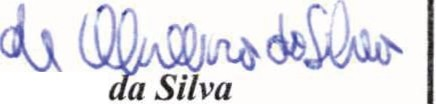 de Oliveira da Silva
da Silva